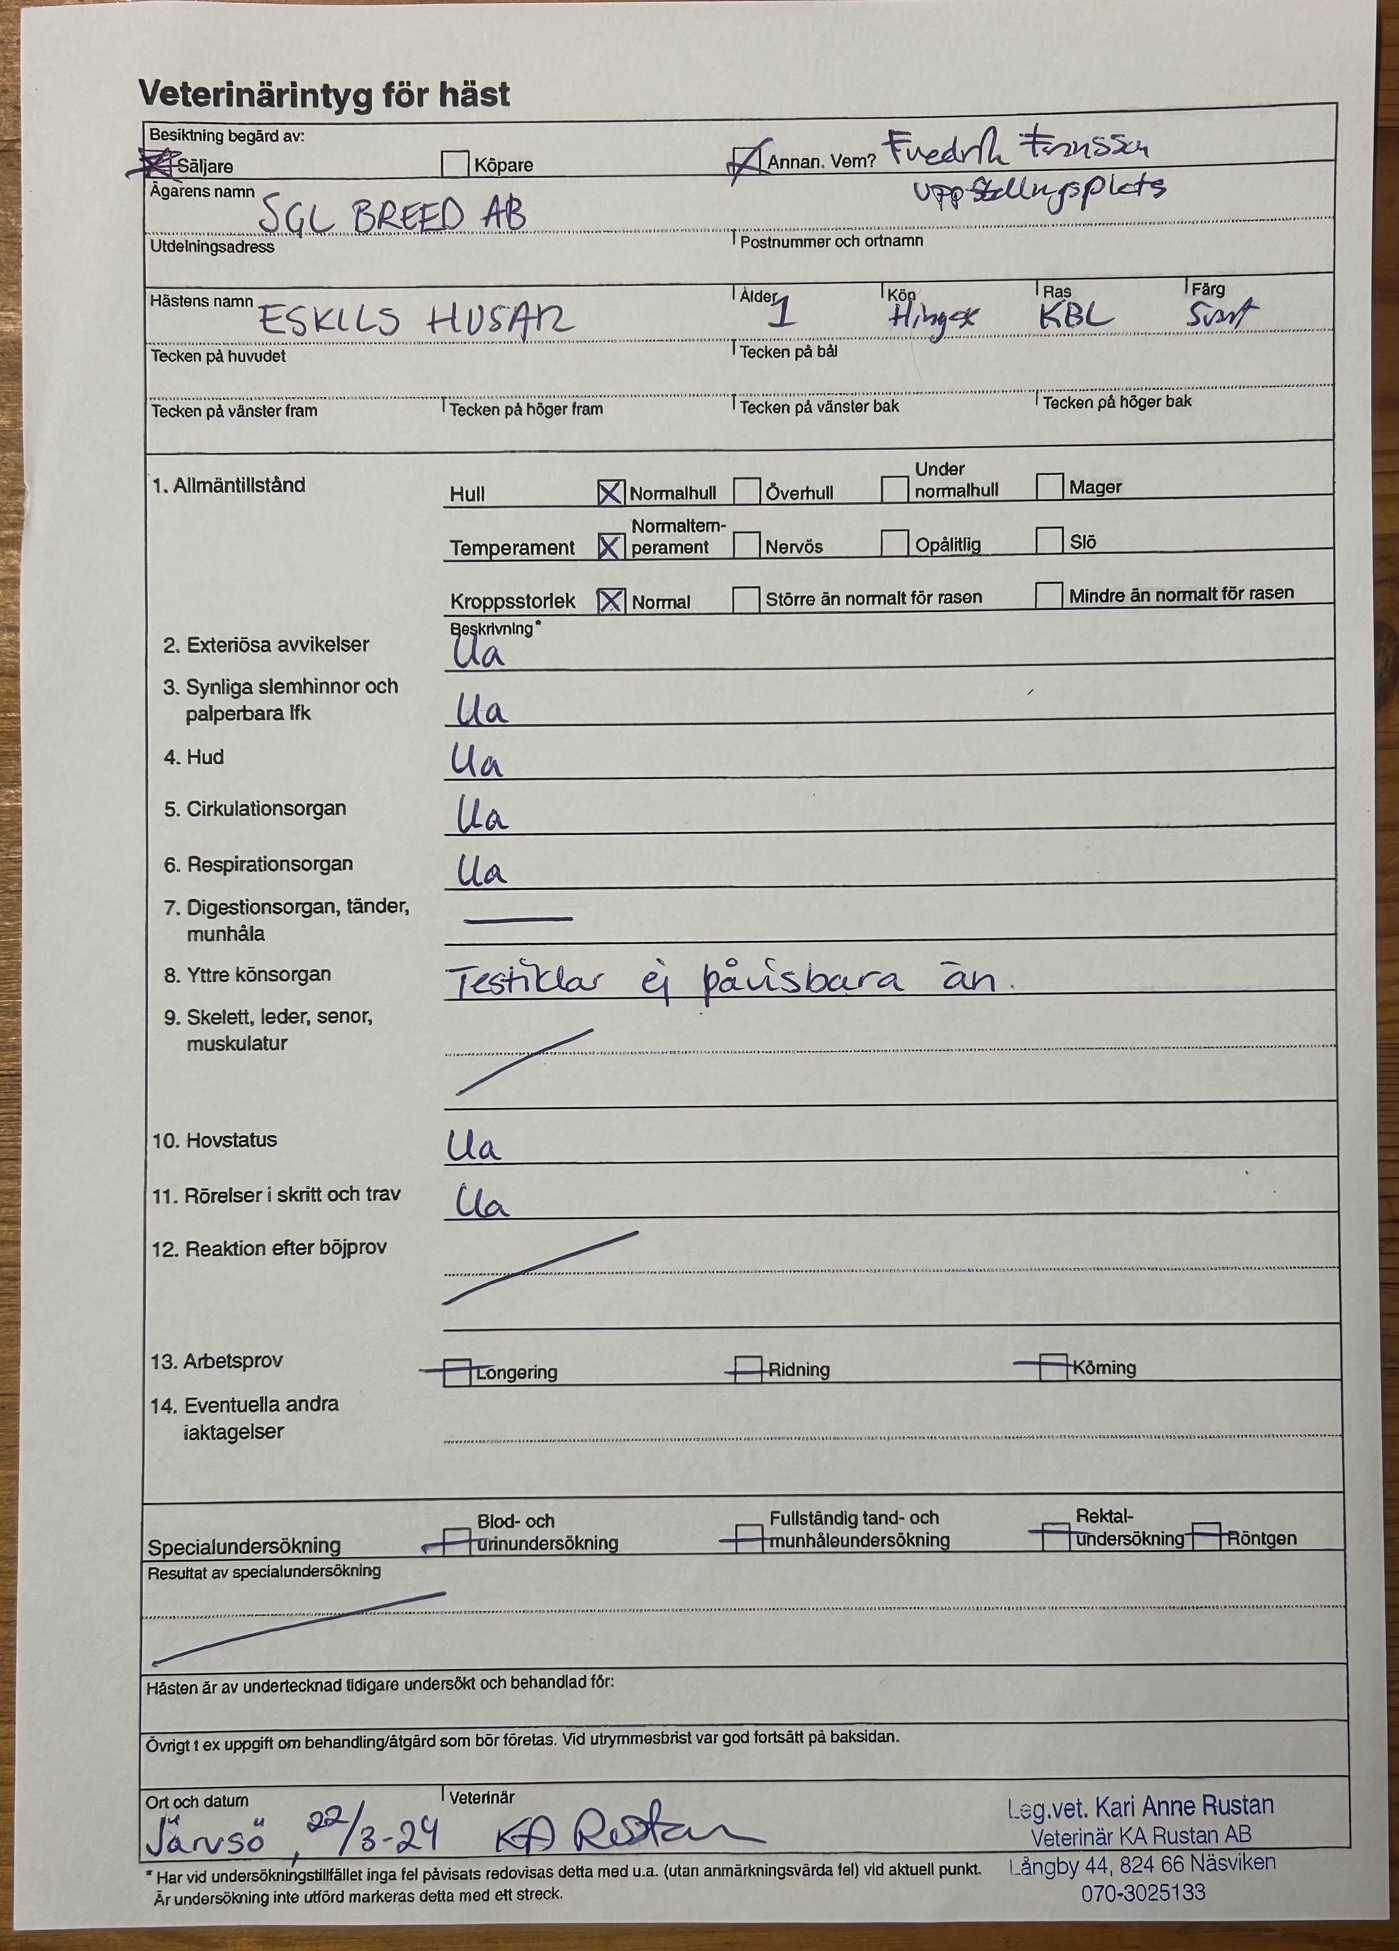 Veterinärintyg för häst
Besiktning begärd av:
Säljare Köpare Annan. Vem? Fredrik Fransson
uppställningsplats
Ägarens namn SGL BREED AB
Utdelningsadress Postnummer och ortnamn
Hästens namn ESKILS HUSAR Ålder 1 Kön Hingst Ras KBL Färg Svart
Tecken på huvudet Tecken på bål
Tecken på vänster fram Tecken på höger fram Tecken på vänster bak Tecken på höger bak
1. Allmäntillstånd Hull Normalhull Överhull Under normalhull Mager
Temperament Normaltem-perament Nervös Opålitlig Slö
Kroppsstorlek Normal Större än normalt för rasen Mindre än normalt för rasen
Beskrivning*
2. Exteriösa avvikelser Ua
3. Synliga slemhinnor och
palperbara lfk Ua
4. Hud Ua
5. Cirkulationsorgan Ua
6. Respirationsorgan Ua
7. Digestionsorgan, tänder,
munhåla
8. Yttre könsorgan Testiklar ej påvisbara än.
9. Skelett, leder, senor,
muskulatur
10. Hovstatus Ua
11. Rörelser i skritt och trav Ua
12. Reaktion efter böjprov
13. Arbetsprov Longering Ridning Körning
14. Eventuella andra
iaktagelser
Specialundersökning Blod- och urinundersökning Fullständig tand- och munhåleundersökning Rektal-undersökning Röntgen
Resultat av specialundersökning
Hästen är av undertecknad tidigare undersökt och behandlad för:
Övrigt t ex uppgift om behandling/åtgärd som bör företas. Vid utrymmesbrist var god fortsätt på baksidan.
Ort och datum Veterinär
Järvsö, 22/3-24 KA Rustan
Leg.vet. Kari Anne Rustan
Veterinär KA Rustan AB
Långby 44, 824 66 Näsviken
070-3025133
* Har vid undersökningstillfället inga fel påvisats redovisas detta med u.a. (utan anmärkningsvärda fel) vid aktuell punkt.
Är undersökning inte utförd markeras detta med ett streck.